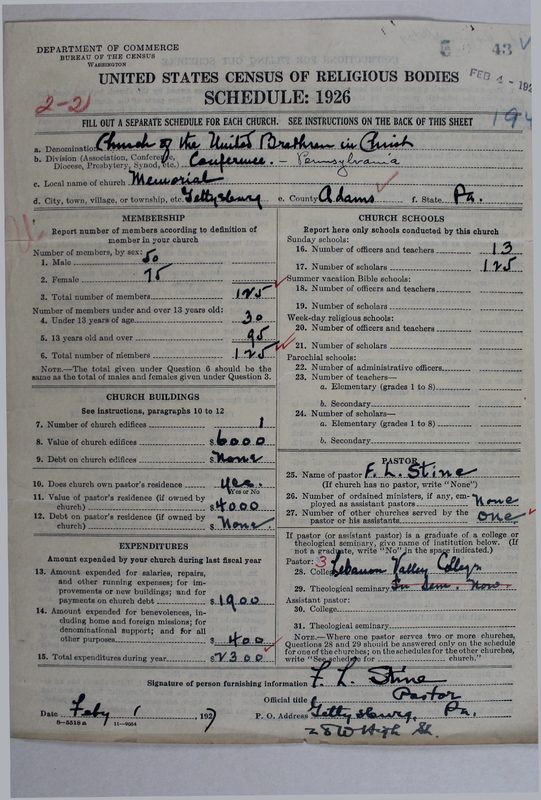 DEPARTMENT OF COMMERCE
BUREAU OF THE CENSUS
WASHINGTON
43
FEB 4 - 192
UNITED STATES CENSUS OF RELIGIOUS BODIES
SCHEDULE: 1926
2-2
194
FILL OUT A SEPARATE SCHEDULE FOR EACH CHURCH. SEE INSTRUCTIONS ON THE BACK OF THIS SHEET
a. Denomination Church of the United Brethren in Christ
b. Division (Association, Conference, Diocese, Presbytery, Synod, etc.) Conference. - Pennsylvania
c. Local name of church Memorial
d. City, town, village, or township, etc. Gettysburg e. County Adams f. State Pa.
MEMBERSHIP
Report number of members according to definition of member in your church
Number of members, by sex:
1. Male 50
2. Female 75
3. Total number of members 125
Number of members under and over 13 years old:
4. Under 13 years of age 30
5. 13 years old and over 95
6. Total number of members 125
NOTE.—The total given under Question 6 should be the same as the total of males and females given under Question 3.
CHURCH BUILDINGS
See instructions, paragraphs 10 to 12
7. Number of church edifices 1
8. Value of church edifices $ 6000
9. Debt on church edifices $ None
10. Does church own pastor's residence? yes.
Yes or No
11. Value of pastor's residence (if owned by church) $ 4000
12. Debt on pastor's residence (if owned by church) $ None.
EXPENDITURES
Amount expended by your church during last fiscal year
13. Amount expended for salaries, repairs, and other running expenses; for improvements or new buildings; and for payments on church debt $ 1900
14. Amount expended for benevolences, including home and foreign missions; for denominational support; and for all other purposes $ 400
15. Total expenditures during year $ 2300
CHURCH SCHOOLS
Report here only schools conducted by this church
Sunday schools:
16. Number of officers and teachers 13
17. Number of scholars 125
Summer vacation Bible schools:
18. Number of officers and teachers
19. Number of scholars
Week-day religious schools:
20. Number of officers and teachers
21. Number of scholars
Parochial schools:
22. Number of administrative officers
23. Number of teachers—
a. Elementary (grades 1 to 8)
b. Secondary
24. Number of scholars—
a. Elementary (grades 1 to 8)
b. Secondary
PASTOR
25. Name of pastor F. L. Stine
(If church has no pastor, write "None")
26. Number of ordained ministers, if any, employed as assistant pastors None
27. Number of other churches served by the pastor or his assistants one
If pastor (or assistant pastor) is a graduate of a college or theological seminary, give name of institution below. (If not a graduate, write "No" in the space indicated.)
Pastor: 3
28. College Lebanon Valley College
29. Theological seminary In Sem. Now.
Assistant pastor:
30. College
31. Theological seminary
NOTE.—Where one pastor serves two or more churches, Questions 28 and 29 should be answered only on the schedule for one of the churches; on the schedules for the other churches, write "See schedule for church."
Signature of person furnishing information F. L. Stine
Official title Pastor
Date Feby 1, 1927
P. O. Address Gettysburg, Pa.
8-5518 a 11-9564
28 W High St.